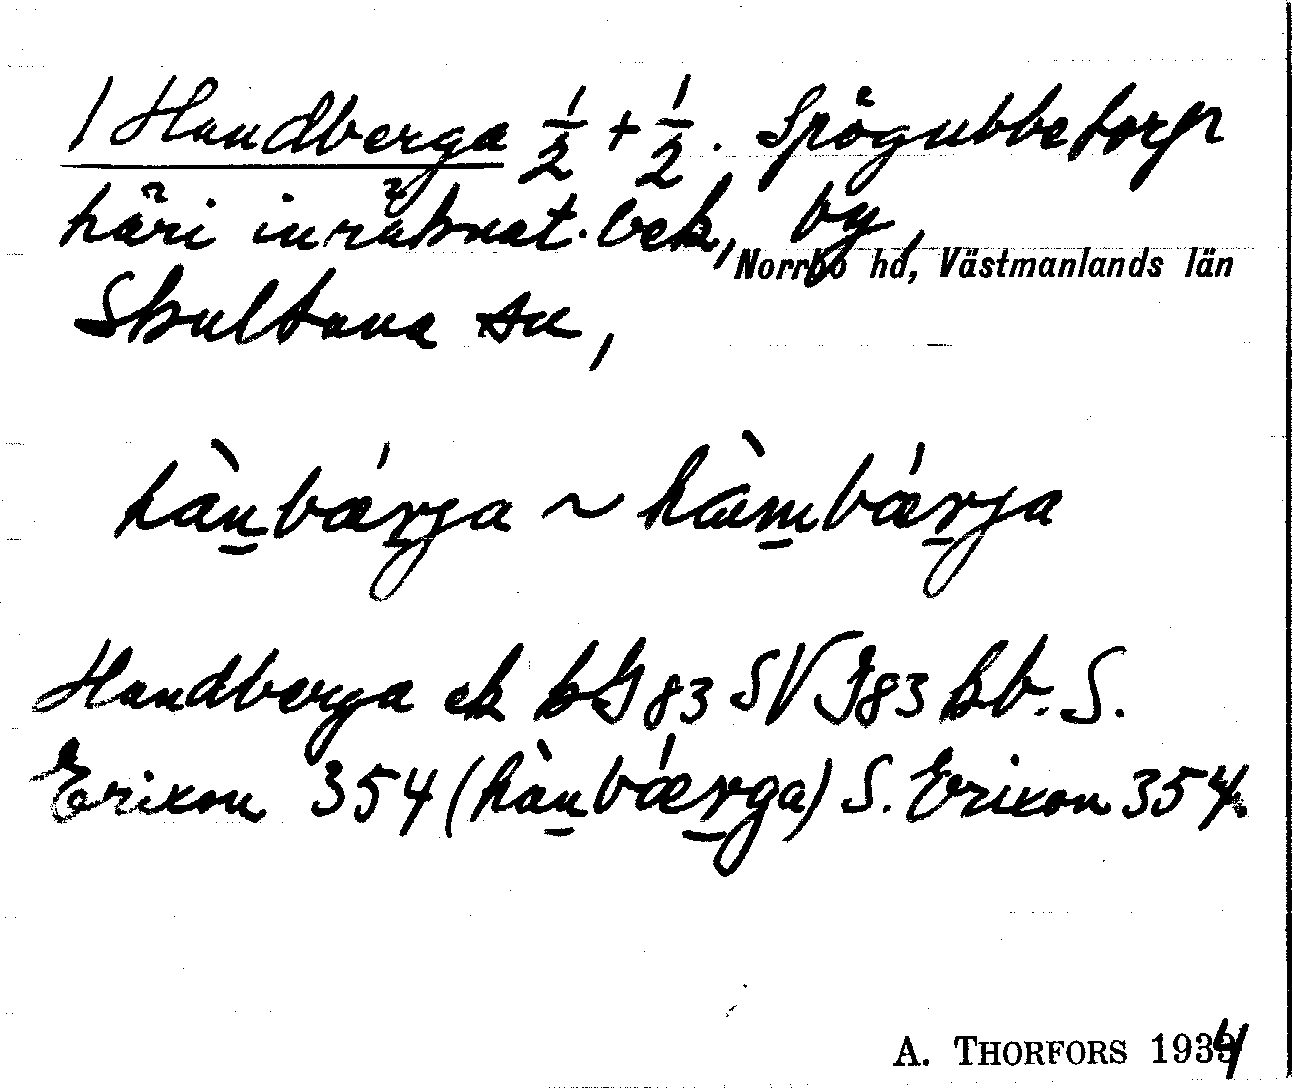 1 Handberga ½ + ½. Spögubbetorp
häri inräknat. bek, by,
Norrbo hd, Västmanlands län
Skultuna sn,
hàn̲bǽr̲ja ~ hàm̲bǽr̲ja
Handberga ek bG 83 SV J83 kb. S.
Erixon 354 (hàn̲bǽr̲ga) S. Erixon 354.
A. THORFORS 1934